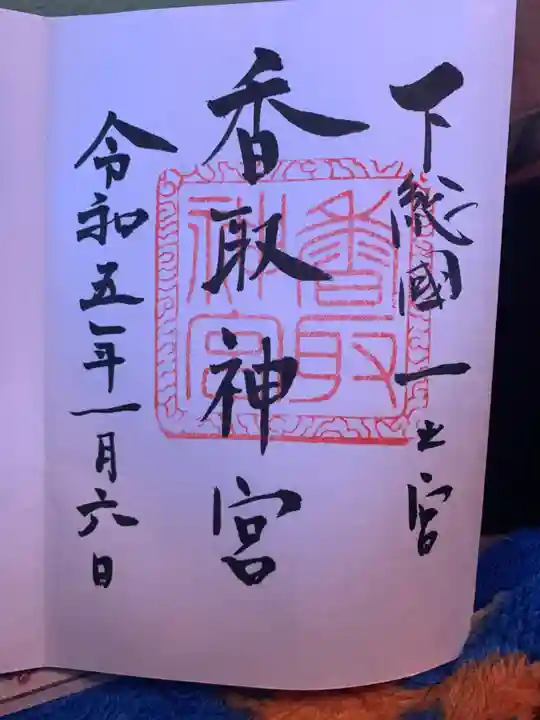 下総國一之宮
香取神宮
香取神宮
令和五年一月六日